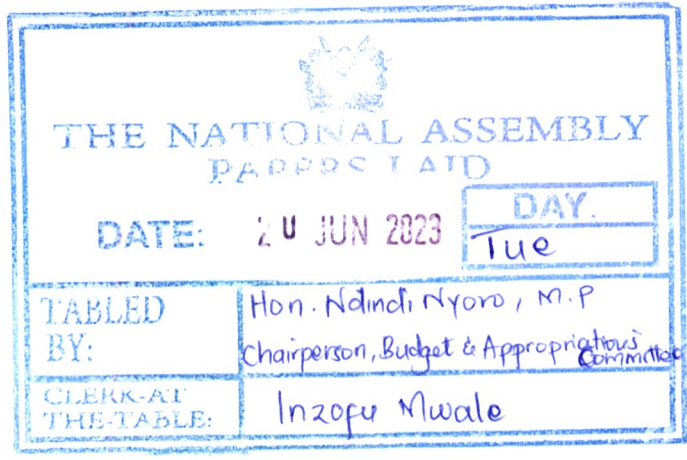 THE NATIONAL ASSEMBLY
PAPERS LAID
DATE: 20 JUN 2023
DAY.
Tue
TABLED BY:
Hon. Ndindi Nyoro, M.P
Chairperson, Budget & Appropriations Committee
CLERK-AT THE-TABLE:
Inzofu Mwale